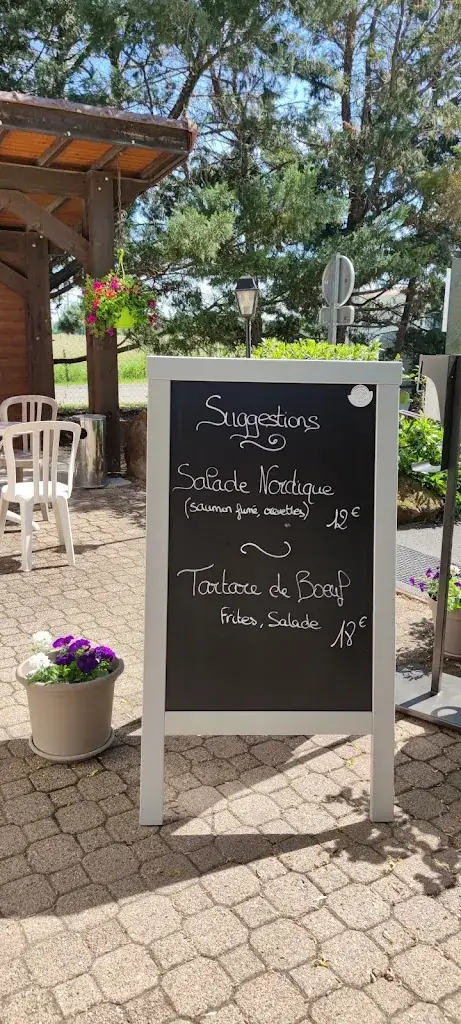 Suggestions
Salade Nordique
(saumon fumé, crevettes) 12€
Tartare de Boeuf
Frites, Salade 18€